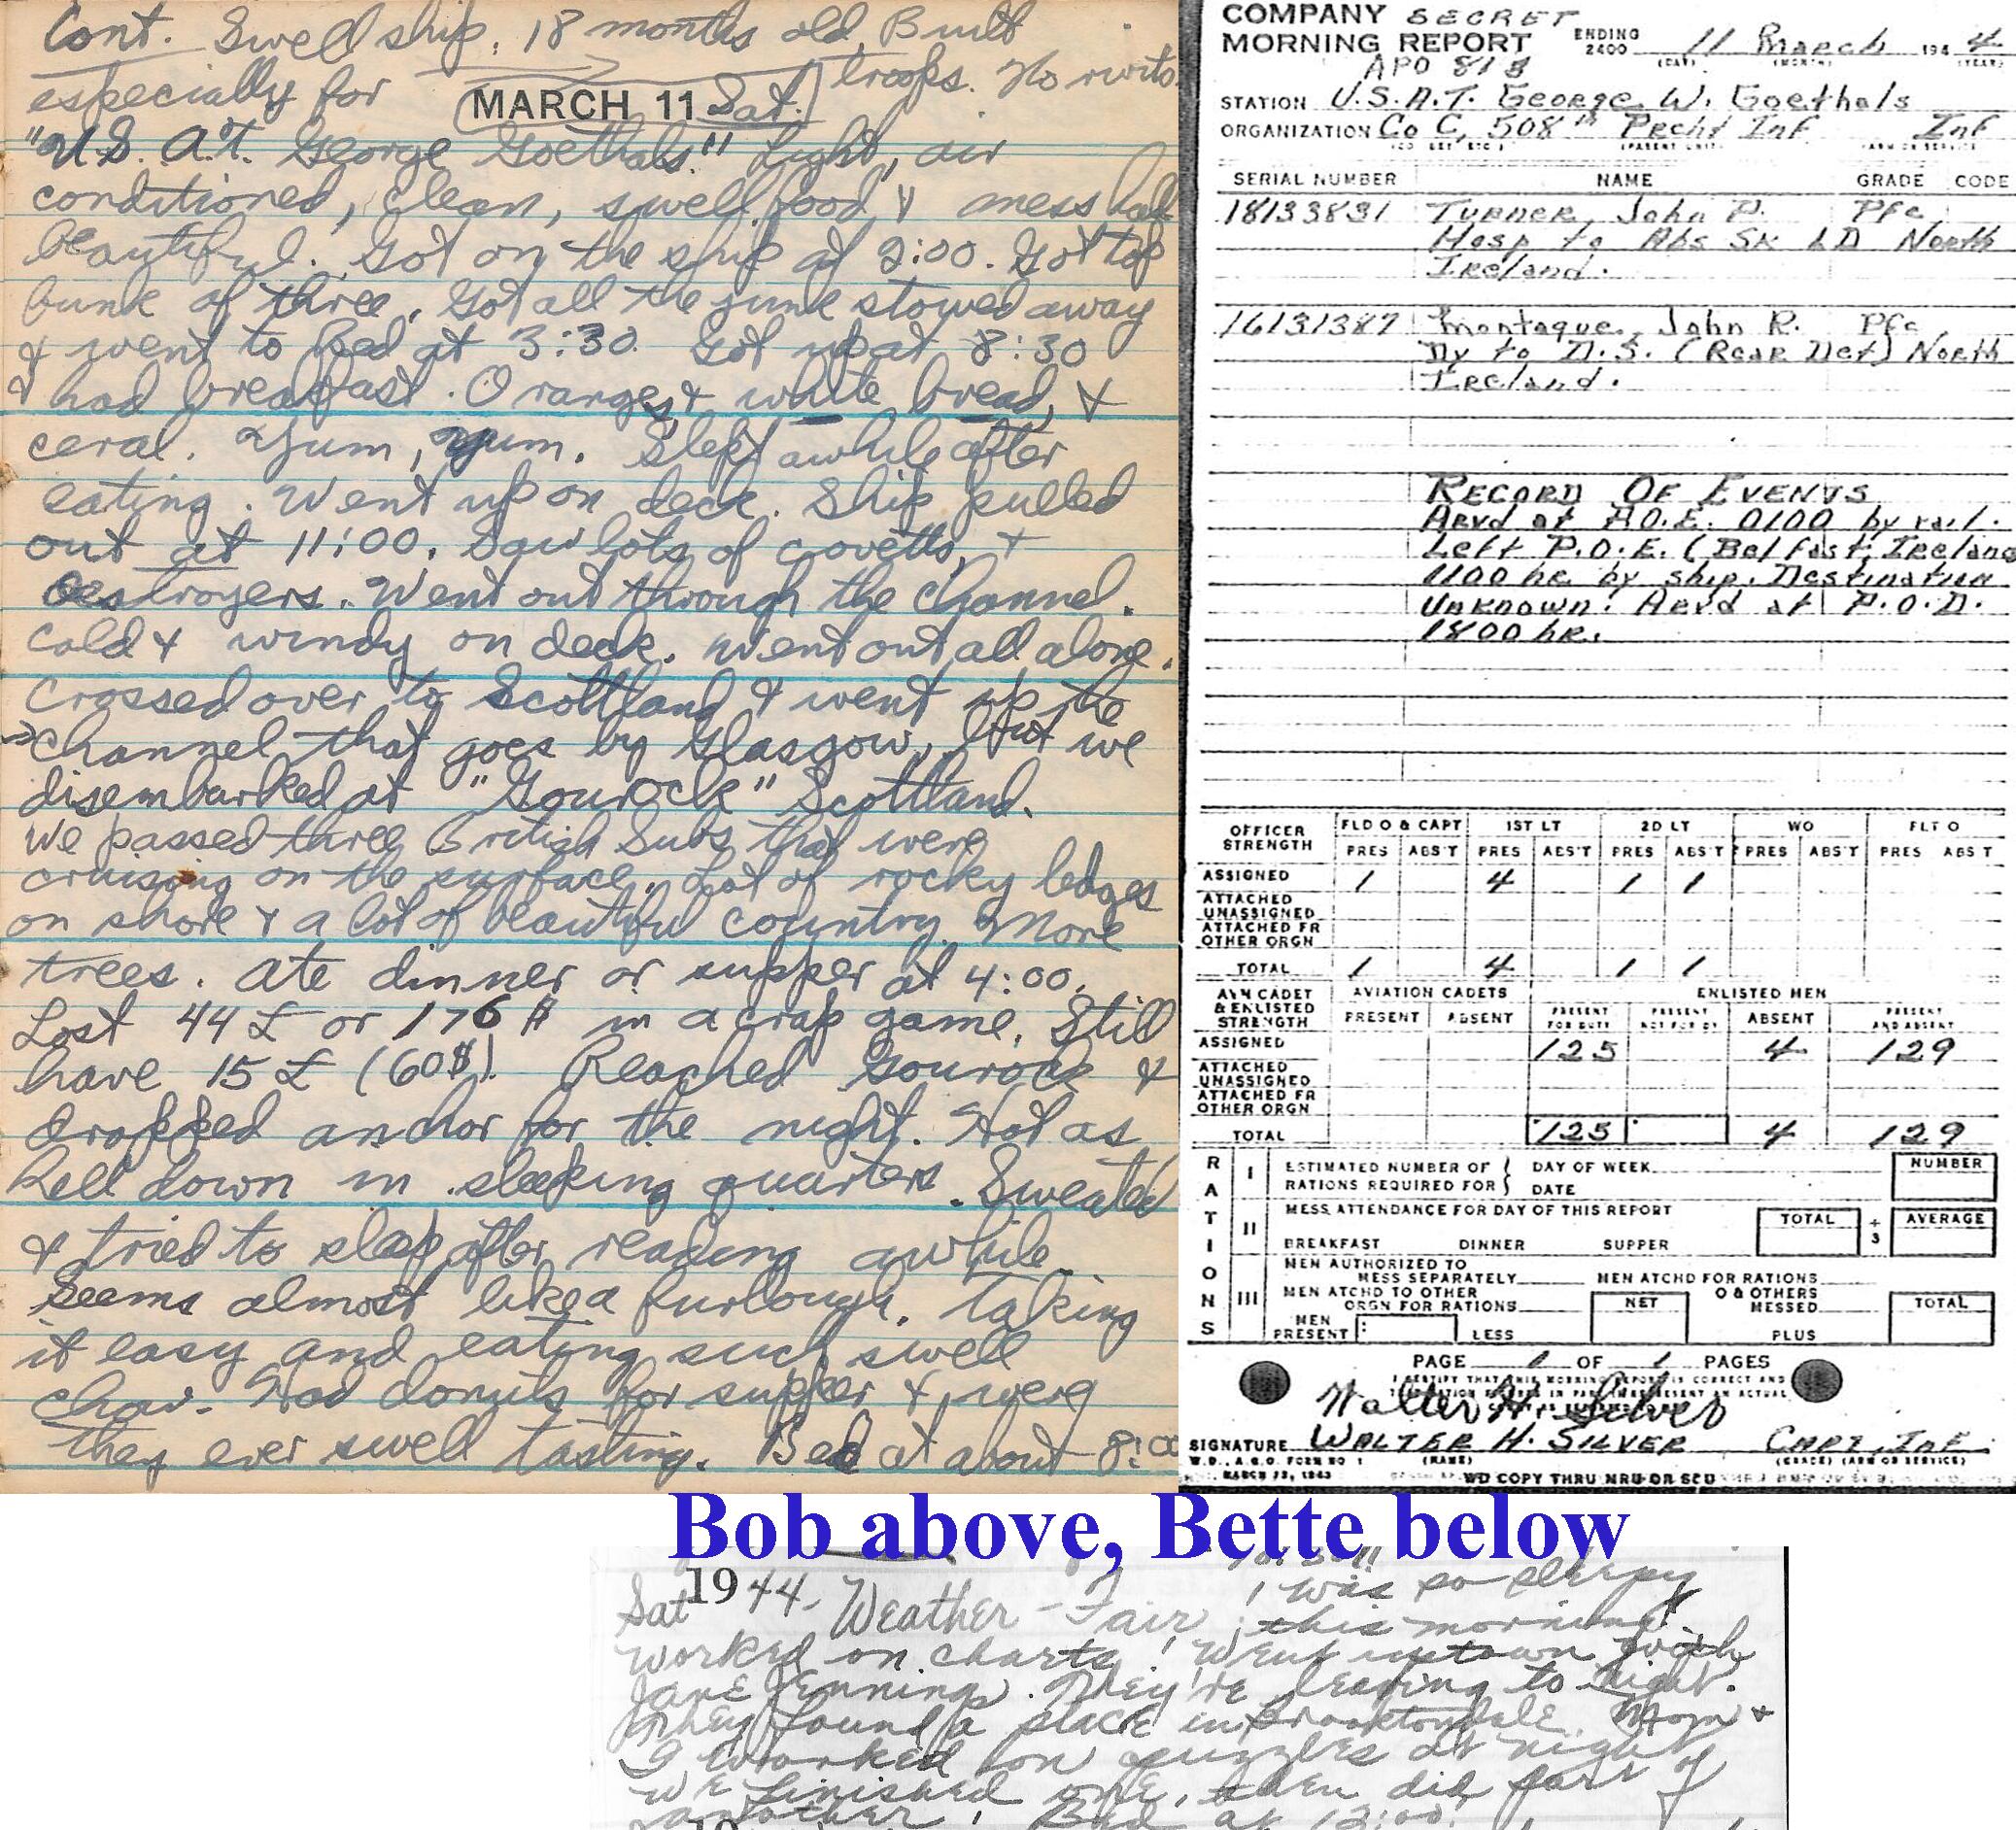 Cont. Swell ship, 18 months old, Built
especially for troops. No
MARCH 11 Sat.
"U.S. A.T. George Goethals." Light, air
conditioned, clean, swell food & mess hall
beautiful. Got on the ship at 2:00. Got top
bunk of three. Got all the junk stowed away
& went to bed at 3:30. Got up at 8:30
& had breakfast. Oranges & white bread, &
ceral. Yum, yum. Slept awhile after
eating. Went up on deck. Ship pulled
out at 11:00. Saw lots of covetts, &
destroyers. Went out through the channel.
Cold & windy on deck. Went out all alone.
Crossed over to Scottland & went up the
→ channel that goes by Glasgow, but we
disembarked at "Gourock" Scottland.
We passed three British Subs that were
cruising on the surface. Lot of rocky ledges
on shore & a lot of beautiful country. More
trees. Ate dinner or supper at 4:00.
Lost 44 £ or 176 $ in a crap game. Still
have 15 £ (60$). Reached Gourock &
dropped anchor for the night. Hot as
hell down in sleeping quarters. Sweated
& tried to sleep after reading awhile.
Seems almost like a furlough. Taking
it easy and eating such swell
chow. Had donuts for supper & were
they ever swell tasting. Bed at about 8:00
COMPANY SECRET
MORNING REPORT ENDING 2400 11 March 1944
(DAY) (MONTH) (YEAR)
APO 813
STATION U.S.A.T. George W. Goethals
ORGANIZATION Co C, 508th Pecht Inf Inf
SERIAL NUMBER NAME GRADE CODE
18133831 Turner, John P. Pfc
Hosp to Abs Sk LD North
Ireland.
16131387 Montague, John R. Pfc
Dy to D.S. (Rear Det) North
Ireland.
RECORD OF EVENTS
Arvd at P.O.E. 0100 by rail.
Left P.O.E. (Belfast, Ireland
1100 hr by ship. Destination
Unknown. Arvd at P.O.D.
1800 hr.
OFFICER STRENGTH FLD O & CAPT 1ST LT 2D LT WO FLT O
PRES ABS'T PRES ABS'T PRES ABS'T PRES ABS'T PRES ABS'T
ASSIGNED 1 4 1 1
ATTACHED UNASSIGNED
ATTACHED FR OTHER ORGN
TOTAL 1 4 1 1
AVN CADET & ENLISTED STRENGTH AVIATION CADETS ENLISTED MEN
PRESENT ABSENT PRESENT FOR DUTY PRESENT NOT FOR DY ABSENT PRESENT AND ABSENT
ASSIGNED 125 4 129
ATTACHED UNASSIGNED
ATTACHED FR OTHER ORGN
TOTAL 125 4 129
RATIONS
I ESTIMATED NUMBER OF RATIONS REQUIRED FOR DAY OF WEEK DATE NUMBER
II MESS ATTENDANCE FOR DAY OF THIS REPORT TOTAL ÷ 3 AVERAGE
BREAKFAST DINNER SUPPER
III MEN AUTHORIZED TO MESS SEPARATELY MEN ATCHD FOR RATIONS
MEN ATCHD TO OTHER ORGN FOR RATIONS NET O & OTHERS MESSED TOTAL
MEN PRESENT LESS PLUS
PAGE 1 OF 1 PAGES
I CERTIFY THAT THIS MORNING REPORT IS CORRECT AND
Walter H. Silver
SIGNATURE WALTER H. SILVER CAPT, Inf
W.D., A.G.O. FORM NO 1 (NAME) (GRADE) (ARM OR SERVICE)
MARCH 23, 1943 WD COPY THRU MRU OR SCU
Bob above, Bette below
Sat 1944. Weather - Fair, I was so sleepy
this morning!
Worked on charts! Went uptown with
Jane Jennings. They're leaving to night.
They found a place in Brooktondale. Mom &
I worked on puzzles at night
We finished one, then did part of
another! Bed at 12:00!